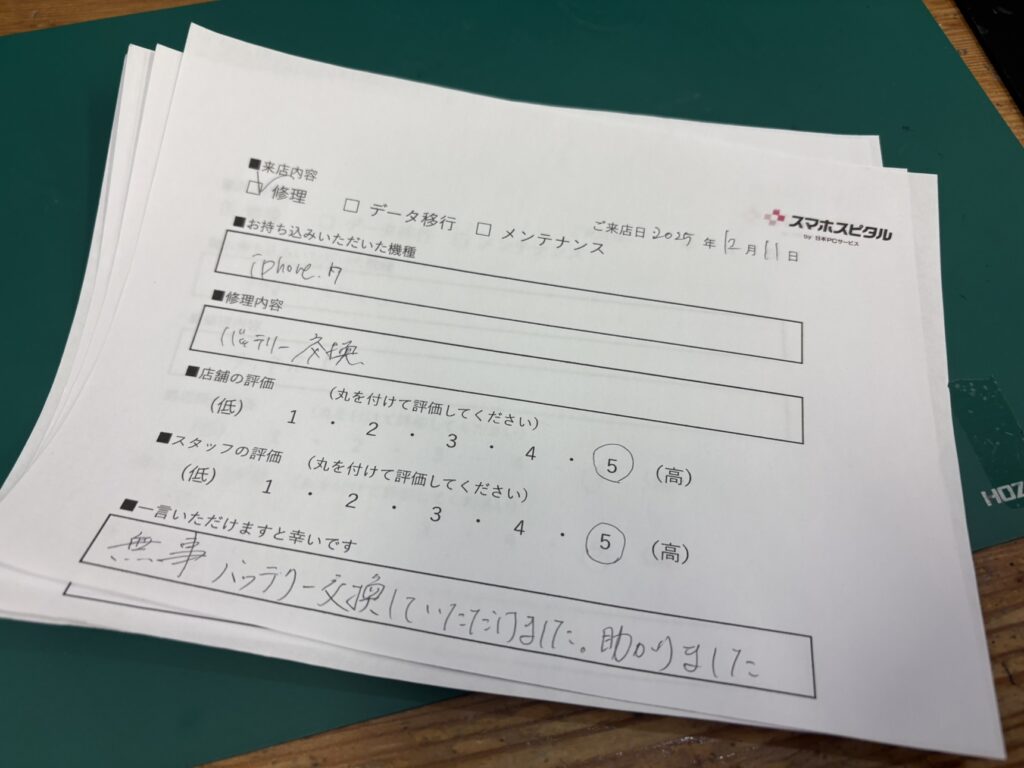 スマホスピタル
by 日本PCサービス
ご来店日 2025 年 12 月 11 日
■来店内容
☑ 修理 □ データ移行 □ メンテナンス
■お持ち込みいただいた機種
iphone.7
■修理内容
バッテリー交換
■店舗の評価 (丸を付けて評価してください)
(低) 1 ・ 2 ・ 3 ・ 4 ・ 5 (高)
■スタッフの評価 (丸を付けて評価してください)
(低) 1 ・ 2 ・ 3 ・ 4 ・ 5 (高)
■一言いただけますと幸いです
無事バッテリー交換していただけました。助かりました
HOZ